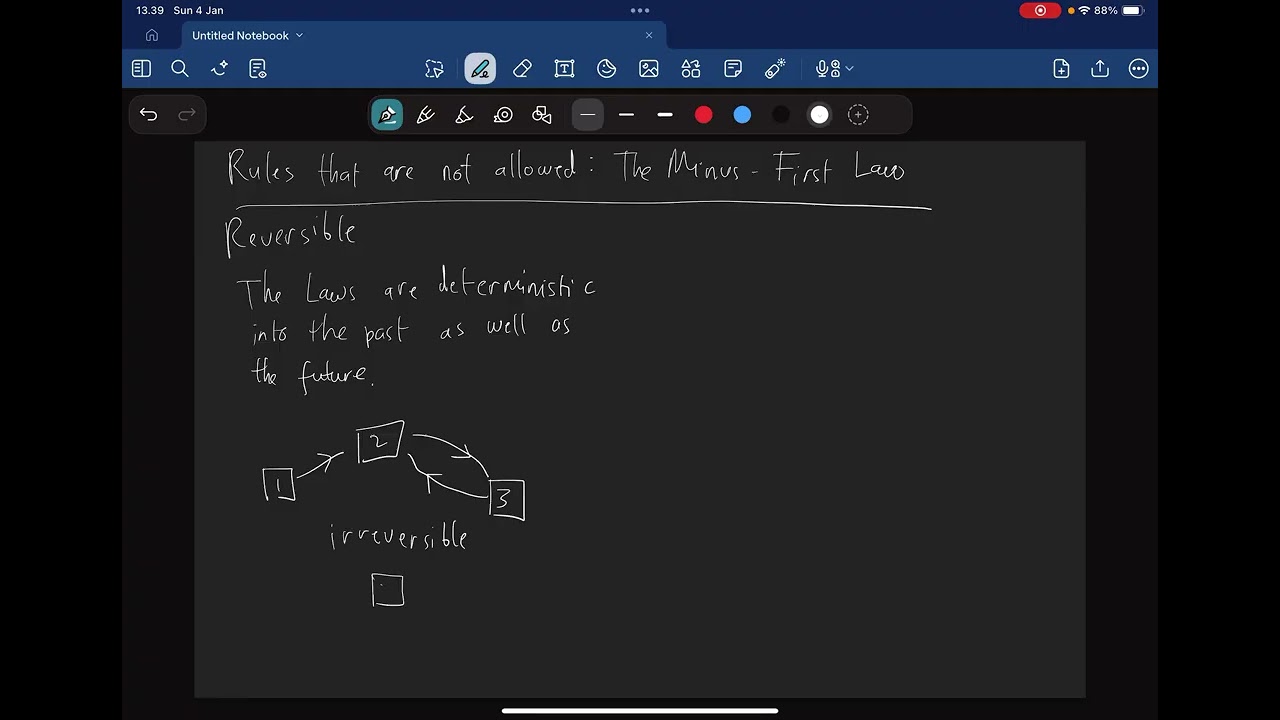 13.39 Sun 4 Jan
88%
Untitled Notebook
Rules that are not allowed: The Minus - First Law
Reversible
The Laws are deterministic
into the past as well as
the future.
2
1
3
irreversible